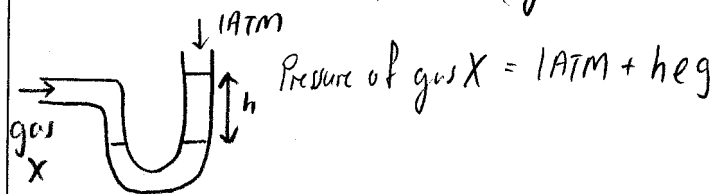 1ATM
Pressure of gas X = 1ATM + heg
h
gas
X